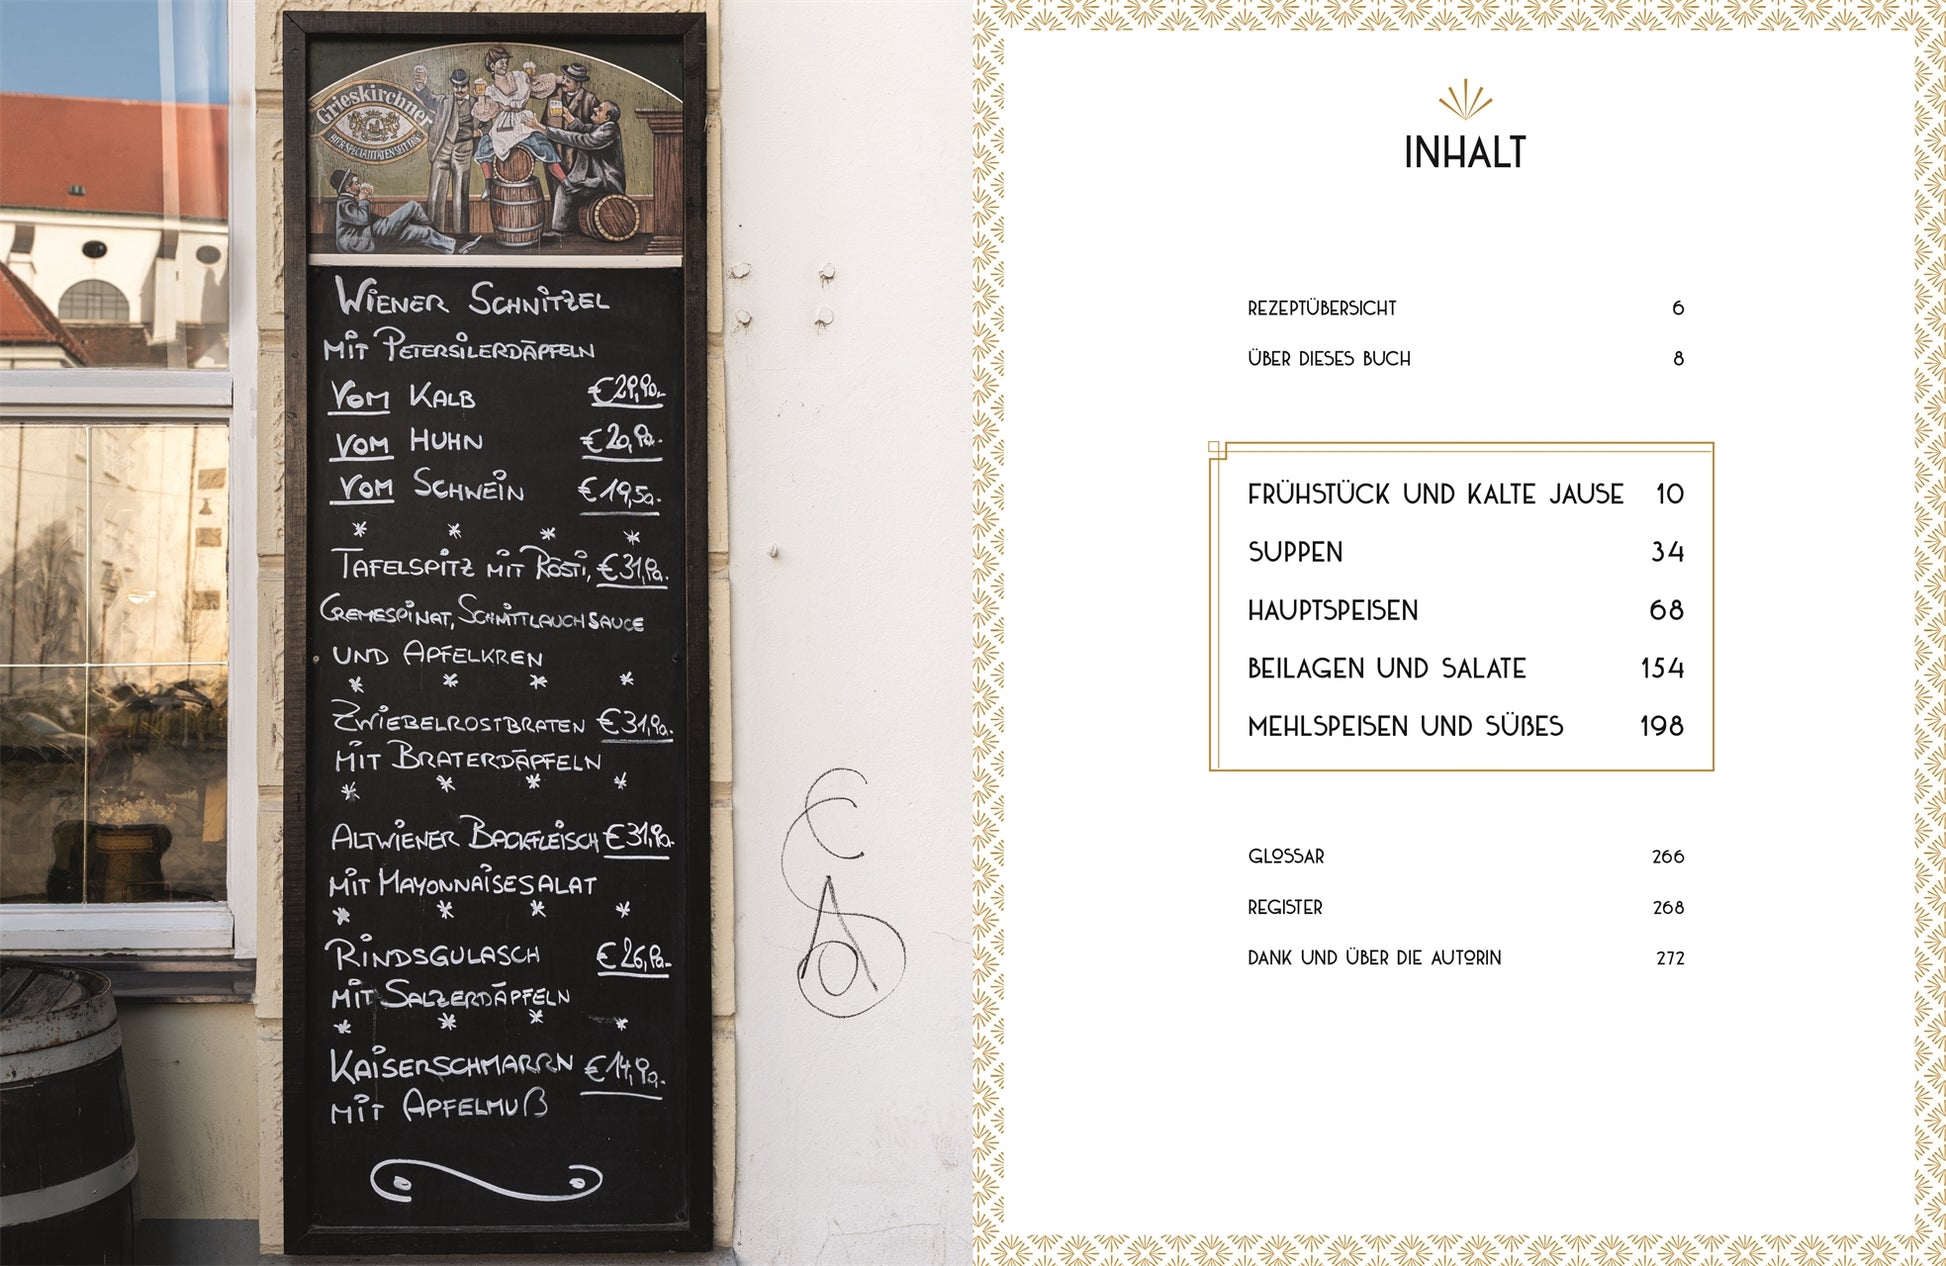 Grieskirchner
BIER-SPEZIALITÄTEN SEIT 1708
WIENER SCHNITZEL
MIT PETERSILERDÄPFELN
VOM KALB €29,90.-
VOM HUHN €20,90.-
VOM SCHWEIN €19,50.-
* * * *
TAFELSPITZ MIT RÖSTI, €31,90.
CREMESPINAT, SCHNITTLAUCHSAUCE
UND APFELKREN
* * * *
ZWIEBELROSTBRATEN €31,90.
MIT BRATERDÄPFELN
* * * *
ALTWIENER BACKFLEISCH €31,90.
MIT MAYONNAISESALAT
* * * *
RINDSGULASCH €26,90.
MIT SALZERDÄPFELN
* * * *
KAISERSCHMARRN €14,90.
MIT APFELMUß
INHALT
REZEPTÜBERSICHT 6
ÜBER DIESES BUCH 8
FRÜHSTÜCK UND KALTE JAUSE 10
SUPPEN 34
HAUPTSPEISEN 68
BEILAGEN UND SALATE 154
MEHLSPEISEN UND SÜßES 198
GLOSSAR 266
REGISTER 268
DANK UND ÜBER DIE AUTORIN 272